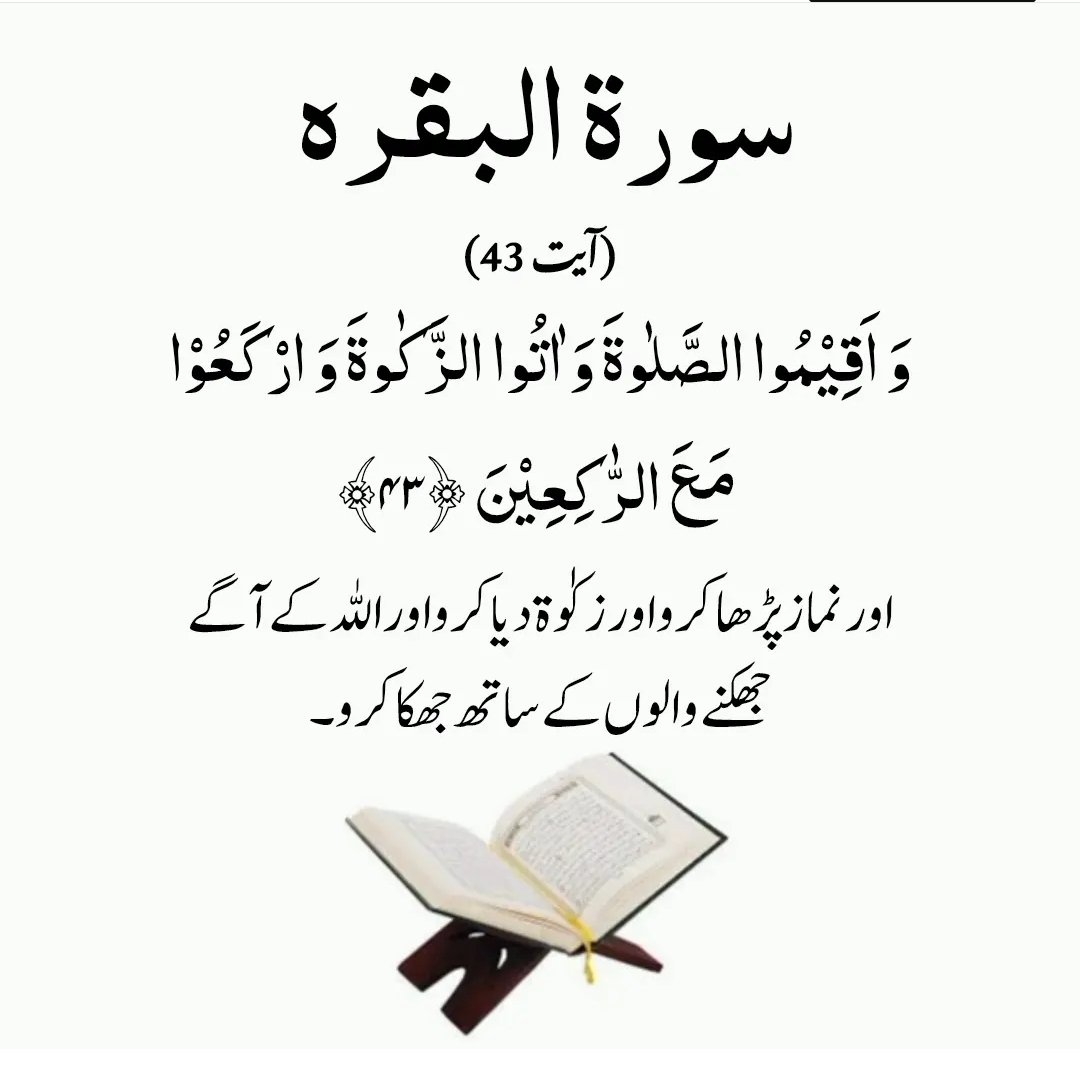 سورۃ البقرہ
(آیت 43)
وَ اَقِیْمُوا الصَّلٰوةَ وَ اٰتُوا الزَّكٰوةَ وَ ارْكَعُوْا
مَعَ الرّٰكِعِیْنَ ﴿۴۳﴾
اور نماز پڑھا کرو اور زکوٰۃ دیا کرو اور اللہ کے آگے
جھکنے والوں کے ساتھ جھکا کرو۔